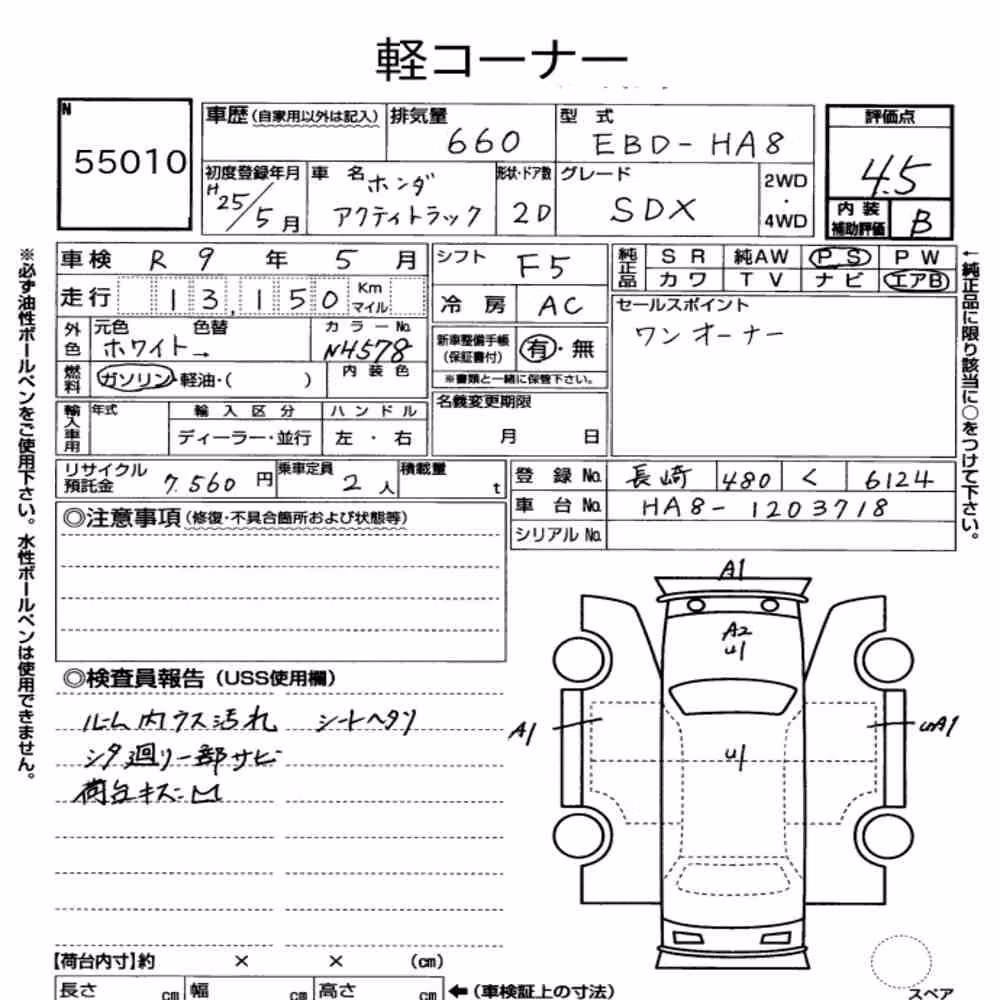 軽コーナー
N
55010
車歴(自家用以外は記入)
排気量
660
型 式
EBD-HA8
評価点
4.5
内装補助評価
B
初度登録年月
H25/5月
車 名
ホンダ
アクティトラック
形状・ドア数
2D
グレード
SDX
2WD
・
4WD
車検 R 9 年 5 月
走行 13,150 Km マイル
シフト
F5
冷 房
AC
純正品
SR 純AW PS PW
カワ TV ナビ エアB
セールスポイント
ワンオーナー
外色
元色 色替
ホワイト→
カラーNo.
NH578
燃料
ガソリン・軽油・( )
内装色
新車整備手帳
(保証書付)
有・無
※書類と一緒に保管下さい。
輸入車用
年式
輸入区分
ハンドル
ディーラー・並行
左・右
名義変更期限
月 日
リサイクル預託金
7,560 円
乗車定員
2 人
積載量
t
登録No. 長崎 480 く 6124
車台No. HA8-1203718
シリアルNo.
◎注意事項(修復・不具合箇所および状態等)
◎検査員報告(USS使用欄)
ルーム内ウス汚れ シートヘタリ
シタ廻り一部サビ
荷台キズ凹
A1
A2
U1
A1
U1
UA1
【荷台内寸】約 × × (cm)
長さ cm 幅 cm 高さ cm
←(車検証上の寸法)
スペア
※必ず油性ボールペンをご使用下さい。水性ボールペンは使用できません。
←純正品に限り該当に○をつけて下さい。